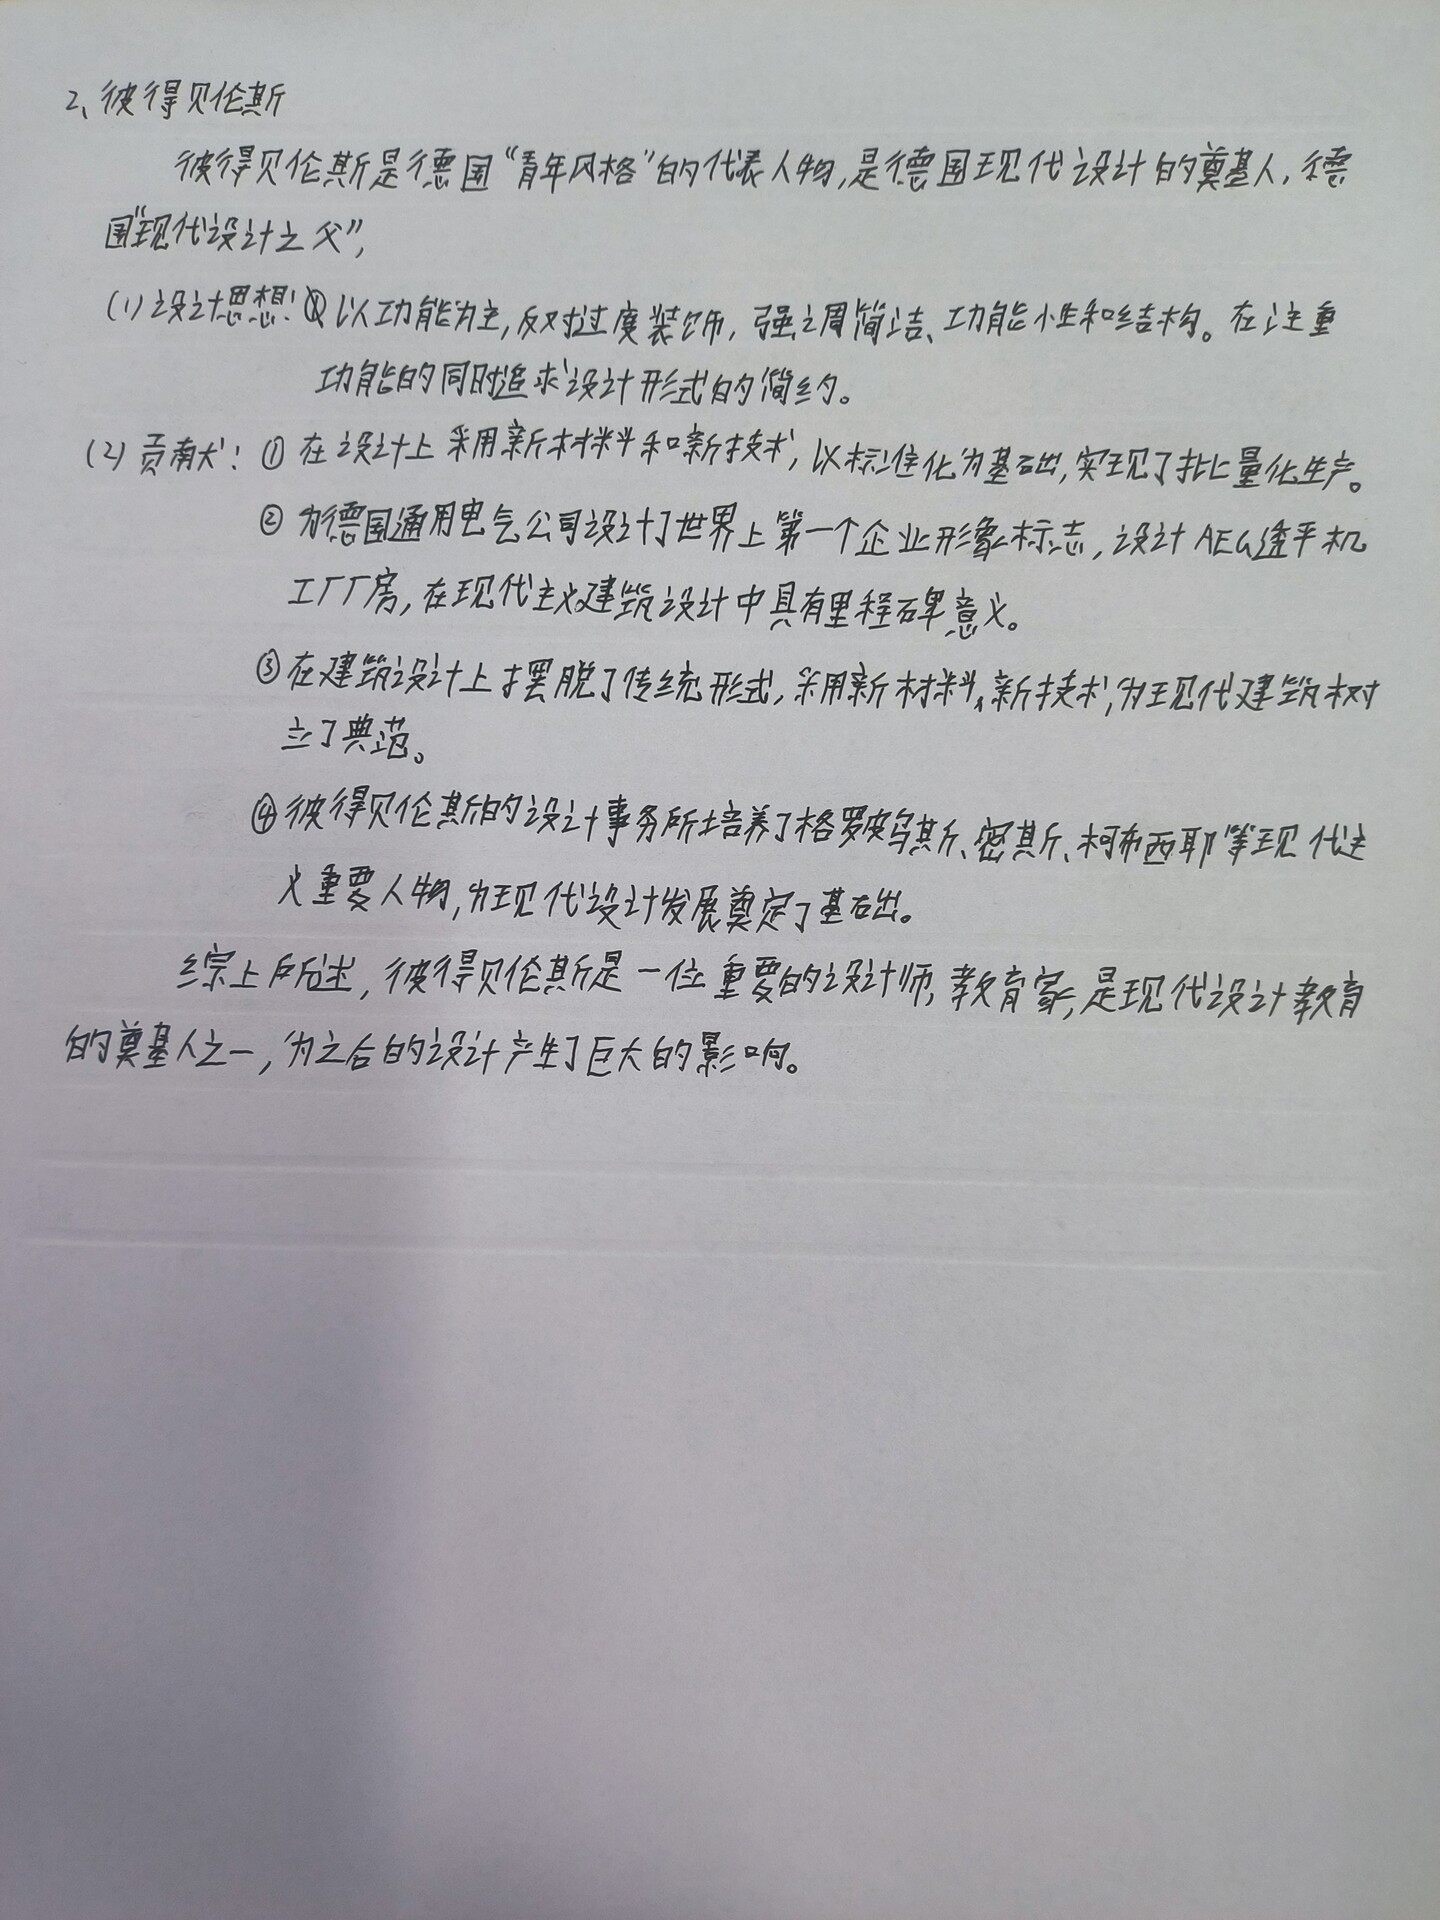 2、彼得贝伦斯
彼得贝伦斯是德国“青年风格”的代表人物,是德国现代设计的奠基人,德
国“现代设计之父”,
(1)设计思想:以功能为主,反对过度装饰,强调简洁、功能性和结构。在注重
功能的同时追求设计形式的简约。
(2)贡献:①在设计上采用新材料和新技术,以标准化为基础,实现了批量化生产。
②为德国通用电气公司设计了世界上第一个企业形象标志,设计AEG透平机
工厂厂房,在现代主义建筑设计中具有里程碑意义。
③在建筑设计上摆脱了传统形式,采用新材料、新技术,为现代建筑树
立了典范。
④彼得贝伦斯的设计事务所培养了格罗皮乌斯、密斯、柯布西耶等现代主
义重要人物,为现代设计发展奠定了基础。
综上所述,彼得贝伦斯是一位重要的设计师,教育家,是现代设计教育
的奠基人之一,为之后的设计产生了巨大的影响。